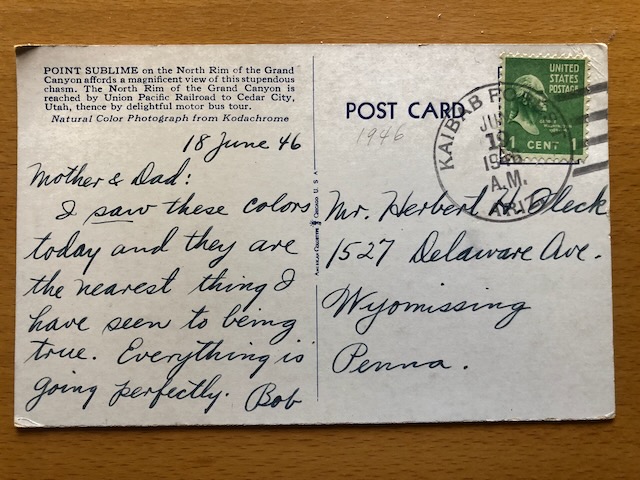 POINT SUBLIME on the North Rim of the Grand
Canyon affords a magnificent view of this stupendous
chasm. The North Rim of the Grand Canyon is
reached by Union Pacific Railroad to Cedar City,
Utah, thence by delightful motor bus tour.
Natural Color Photograph from Kodachrome
18 June 46
Mother & Dad:
I saw these colors
today and they are
the nearest thing I
have seen to being
true. Everything is
going perfectly. Bob
POST CARD
1946
KAIBAB
1946
A.M.
ARIZ.
UNITED
STATES
POSTAGE
1 CENT 1
Mr. Herbert Bleck
1527 Delaware Ave.
Wyomissing
Penna.